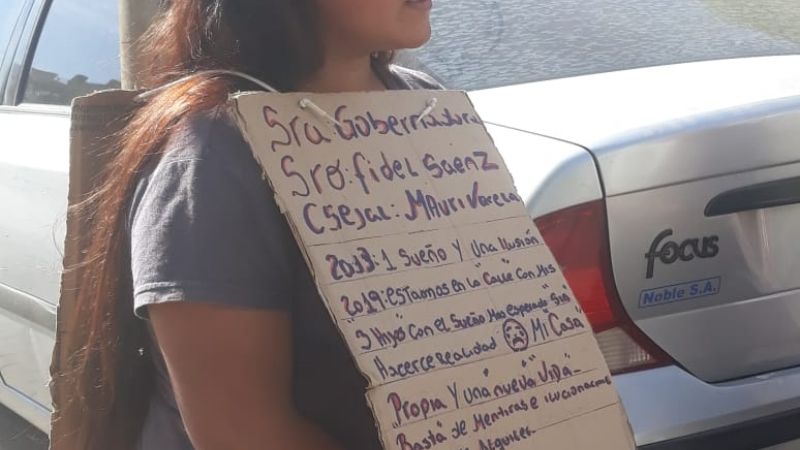 Sra: Gobernadora
Sro: fidel Saenz
Csejal: MAuri Varela
2013: 1 Sueño Y una Ilusión
2019: estamos en la "Calle" Con Mis
"5 Hijos" Con el Sueño Mas esperado "Sin"
Hacerce Realidad Mi Casa"
Propia Y una "nueva" VIDA -
"Basta" de Mentiras e ilucionarme
Alquiler
Focus
Noble S.A.